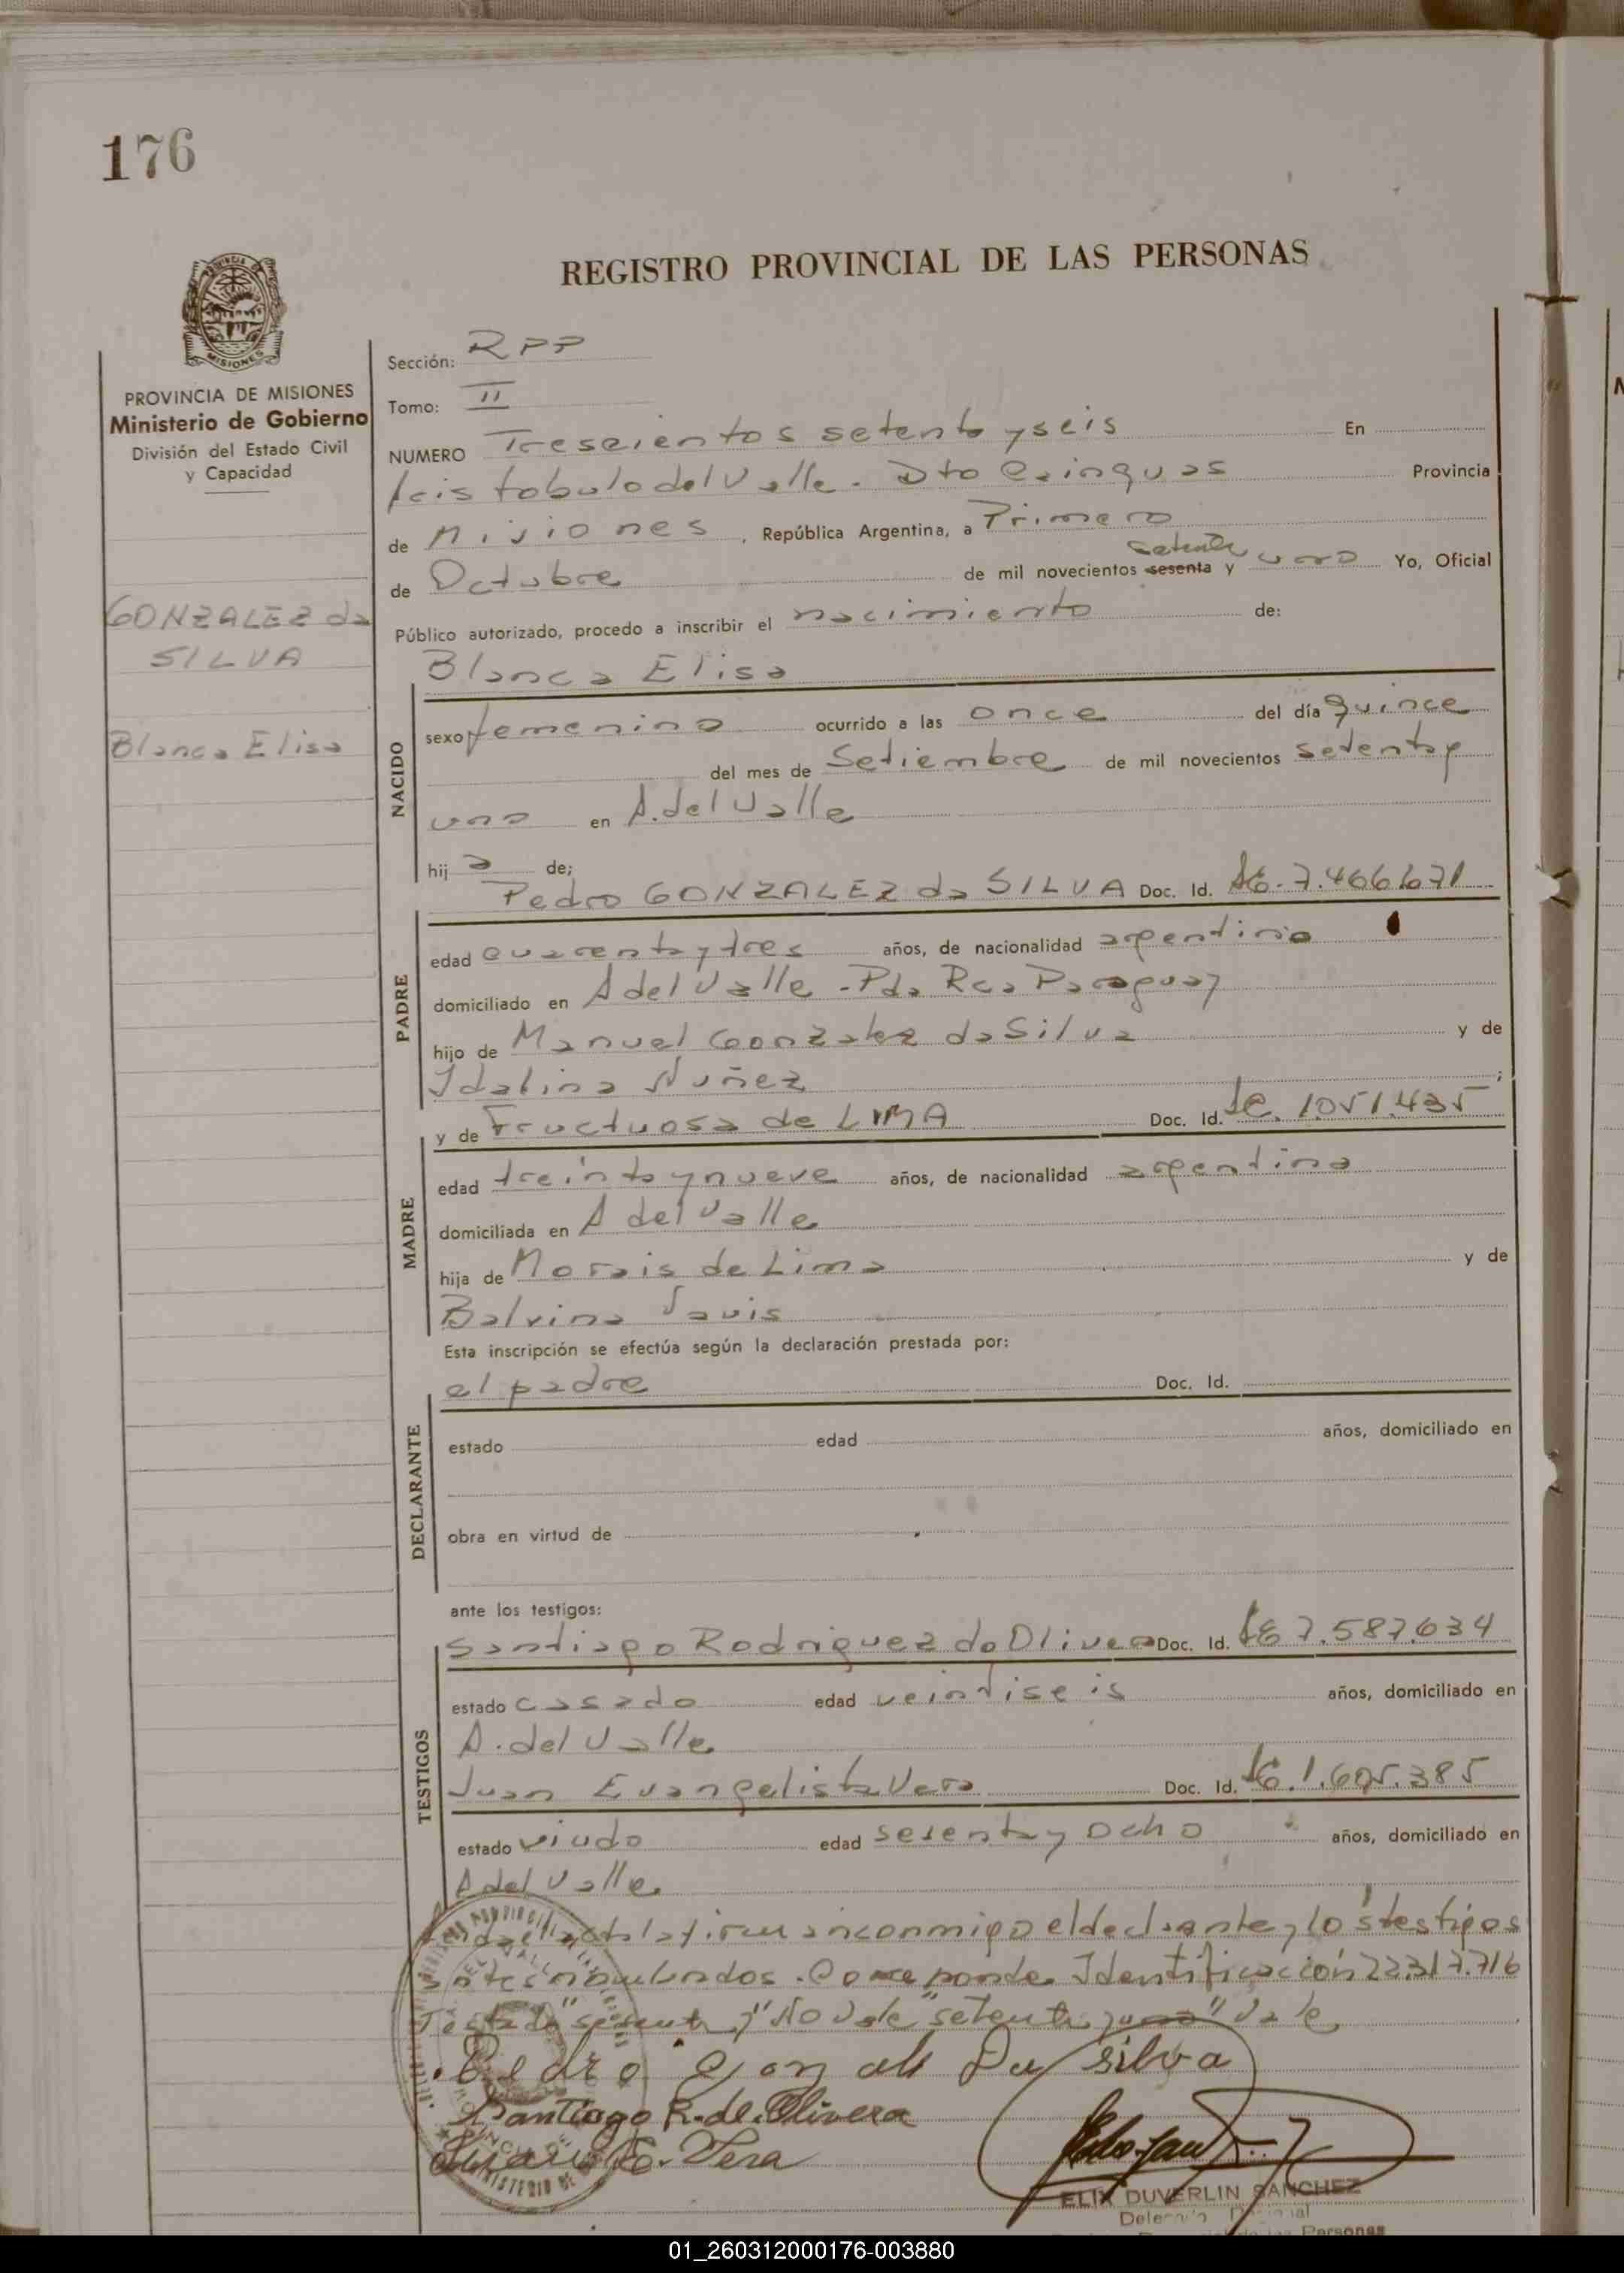 176
REGISTRO PROVINCIAL DE LAS PERSONAS
PROVINCIA DE MISIONES
Ministerio de Gobierno
División del Estado Civil
y Capacidad
GONZALEZ da
SILVA
Blanca Elisa
Sección: RPP
Tomo: II
NUMERO Trescientos setenta y seis En
Aristobulo del Valle. Dto Cainguas Provincia
de Misiones, República Argentina, a Primero
de Octubre de mil novecientos sesenta y setenta y uno Yo, Oficial
Público autorizado, procedo a inscribir el nacimiento de:
Blanca Elisa
NACIDO
sexo femenino ocurrido a las once del día quince
del mes de Setiembre de mil novecientos setenta y
uno en A. del Valle
hij a de;
Pedro GONZALEZ da SILVA Doc. Id. LE. 7.466.671
PADRE
edad cuarenta y tres años, de nacionalidad argentino
domiciliado en A del Valle - Pda Rca Paraguay
hijo de Manuel Gonzalez da Silva y de
Idalina Nuñez ;
y de Fructuosa de LIMA Doc. Id. LC. 1.051.435
MADRE
edad treinta y nueve años, de nacionalidad argentina
domiciliada en A del Valle
hija de Morais de Lima y de
Balvina
Esta inscripción se efectúa según la declaración prestada por:
el padre Doc. Id.
DECLARANTE
estado edad años, domiciliado en
obra en virtud de
ante los testigos:
Santiago Rodriguez do Olivera Doc. Id. LE 7.587.634
TESTIGOS
estado casado edad veintiseis años, domiciliado en
A. del Valle
Juan Evangelista Vera Doc. Id. LE. 1.605.385
estado viudo edad sesenta y ocho años, domiciliado en
A del Valle
Leida el acta la firman conmigo el declarante y los testigos
antes nombrados. Corresponde Identificación 22.317.716
Testado "sesenta y" No vale "setenta y uno" Vale
Pedro Gonzale Da silva
Santiago R. de. Olivera
Juan E. Vera
ELIX DUVERLIN SANCHEZ
Personas
01_260312000176-003880